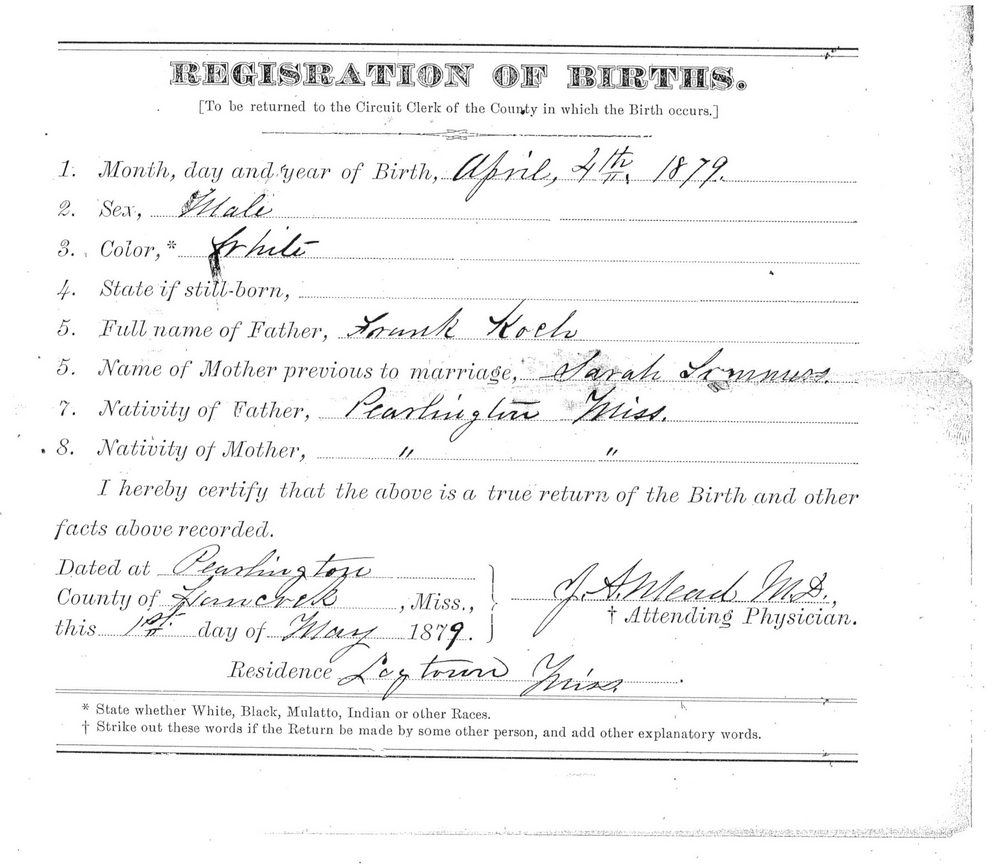 REGISRATION OF BIRTHS.
[To be returned to the Circuit Clerk of the County in which the Birth occurs.]
1. Month, day and year of Birth, April, 4th, 1879.
2. Sex, Male
3. Color,* White
4. State if still-born,
5. Full name of Father, Frank Koch
5. Name of Mother previous to marriage, Sarah
7. Nativity of Father, Pearlington Miss.
8. Nativity of Mother, " "
I hereby certify that the above is a true return of the Birth and other
facts above recorded.
Dated at Pearlington
County of Hancock, Miss.,
this 1st. day of May 1879.
J. A. Mead M.D.,
† Attending Physician.
Residence Logtown Miss.
* State whether White, Black, Mulatto, Indian or other Races.
† Strike out these words if the Return be made by some other person, and add other explanatory words.